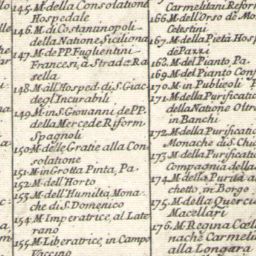 145. M. della Consolatione
Hospedale
146. M. di Costantinopoli
della Natione Siciliana
147. M. de PP. Fuglientini
Francesi, a Strada Ra
sella
148. M. all'Hosped. di S. Giac.
degl'Incurabili
149. M. in S. Giovanni de PP.
della Mercede Riform.
Spagnoli
150. M. delle Gratie alla Con
solatione
151. M. in Grotta Pinta, Pa.
152. M. dell'Horto
153. M. dell'Humilta Mona
che di S. Domenico
154. M. Imperatrice, al Late
rano
155. M. Liberatrice, in Campo
Vaccino
Carmelitani Refor
166. M. dell'Orso de Mo
Celestini
167. M. della Pietà Hosp
de Pazzi
168. M. del Pianto Pa.
169. M. del Pianto Conf
170. M. in Publicoli P
171. M. della Purificati
della Natione Oltr
in Banchi
172. M. della Purificatio
Monache di S. Chi
173. M. della Purificati
Compagnia della
174. M. della Purità a
chetto, in Borgo
175. M. della Querci
Macellari
176. M. Regina Cœli
nache Carmeli
alla Longara